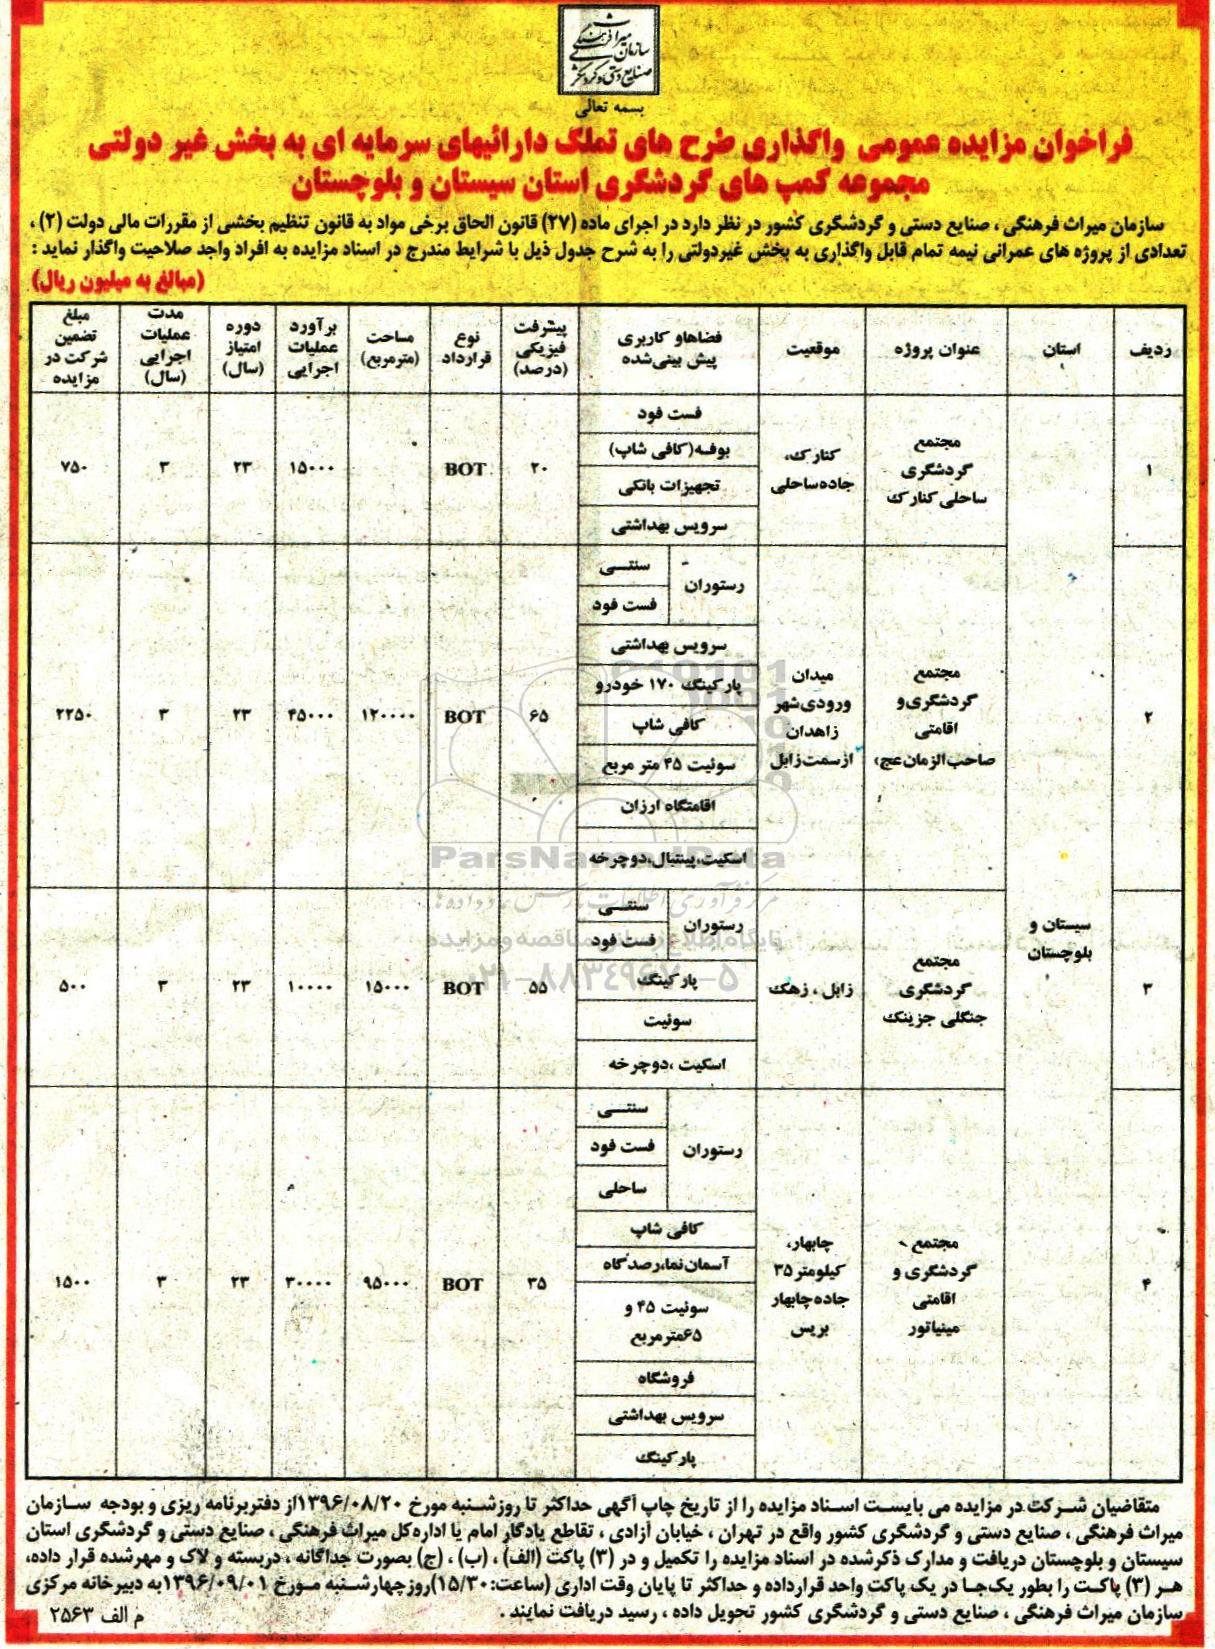 سازمان میراث فرهنگی
صنایع دستی و گردشگری
بسمه تعالی
فراخوان مزایده عمومی واگذاری طرح های تملک دارائیهای سرمایه ای به بخش غیر دولتی
مجموعه کمپ های گردشگری استان سیستان و بلوچستان
سازمان میراث فرهنگی ، صنایع دستی و گردشگری کشور در نظر دارد در اجرای ماده (۲۷) قانون الحاق برخی مواد به قانون تنظیم بخشی از مقررات مالی دولت (۲) ،
تعدادی از پروژه های عمرانی نیمه تمام قابل واگذاری به بخش غیردولتی را به شرح جدول ذیل با شرایط مندرج در اسناد مزایده به افراد واجد صلاحیت واگذار نماید :
(مبالغ به میلیون ریال)
ردیف
استان
عنوان پروژه
موقعیت
فضاهاو کاربری
پیش بینی‌شده
پیشرفت
فیزیکی
(درصد)
نوع
قرارداد
مساحت
(مترمربع)
برآورد
عملیات
اجرایی
دوره
امتیاز
(سال)
مدت
عملیات
اجرایی
(سال)
مبلغ
تضمین
شرکت در
مزایده
سیستان و
بلوچستان
۱
مجتمع
گردشگری
ساحلی کنارک
کنارک،
جاده‌ساحلی
فست فود
بوفه(کافی شاپ)
تجهیزات بانکی
سرویس بهداشتی
۲۰
BOT
۱۵۰۰۰
۲۳
۳
۷۵۰
۲
مجتمع
گردشگری‌و
اقامتی
صاحب‌الزمان‌عج،
میدان
ورودی‌شهر
زاهدان
ازسمت‌زابل
رستوران
سنتی
فست فود
سرویس بهداشتی
پارکینگ ۱۷۰ خودرو
کافی شاپ
سوئیت ۴۵ متر مربع
اقامتگاه ارزان
اسکیت،پینتبال،دوچرخه
۶۵
BOT
۱۲۰۰۰۰
۴۵۰۰۰
۲۳
۳
۲۲۵۰
۳
مجتمع
گردشگری
جنگلی جزینک
زابل ، زهک
رستوران
سنتی
فست فود
پارکینگ
سوئیت
اسکیت ،دوچرخه
۵۵
BOT
۱۵۰۰۰
۱۰۰۰۰
۲۳
۳
۵۰۰
۴
مجتمع
گردشگری و
اقامتی
مینیاتور
چابهار،
کیلومتر۳۵
جاده‌چابهار
بریس
رستوران
سنتی
فست فود
ساحلی
کافی شاپ
آسمان‌نما،رصدگاه
سوئیت ۴۵ و
۶۵مترمربع
فروشگاه
سرویس بهداشتی
پارکینگ
۳۵
BOT
۹۵۰۰۰
۳۰۰۰۰
۲۳
۳
۱۵۰۰
ParsNamadData
مرکز فرآوری اطلاعات پارس نماد داده ها
پایگاه اطلاع رسانی مناقصه و مزایده
۰۲۱-۸۸۳۴۹۶۷۰-۵
متقاضیان شرکت در مزایده می بایست اسناد مزایده را از تاریخ چاپ آگهی حداکثر تا روزشنبه مورخ ۱۳۹۶/۰۸/۲۰از دفتربرنامه ریزی و بودجه سازمان
میراث فرهنگی ، صنایع دستی و گردشگری کشور واقع در تهران ، خیابان آزادی ، تقاطع یادگار امام یا اداره‌کل میراث فرهنگی ، صنایع دستی و گردشگری استان
سیستان و بلوچستان دریافت و مدارک ذکرشده در اسناد مزایده را تکمیل و در (۳) پاکت (الف) ، (ب) ، (ج) بصورت جداگانه ، دربسته و لاک و مهرشده قرار داده،
هر (۳) پاکت را بطور یک‌جا در یک پاکت واحد قرارداده و حداکثر تا پایان وقت اداری (ساعت:۱۵/۳۰)روزچهارشنبه مورخ ۱۳۹۶/۰۹/۰۱به دبیرخانه مرکزی
سازمان میراث فرهنگی ، صنایع دستی و گردشگری کشور تحویل داده ، رسید دریافت نمایند .
م الف ۲۵۶۳